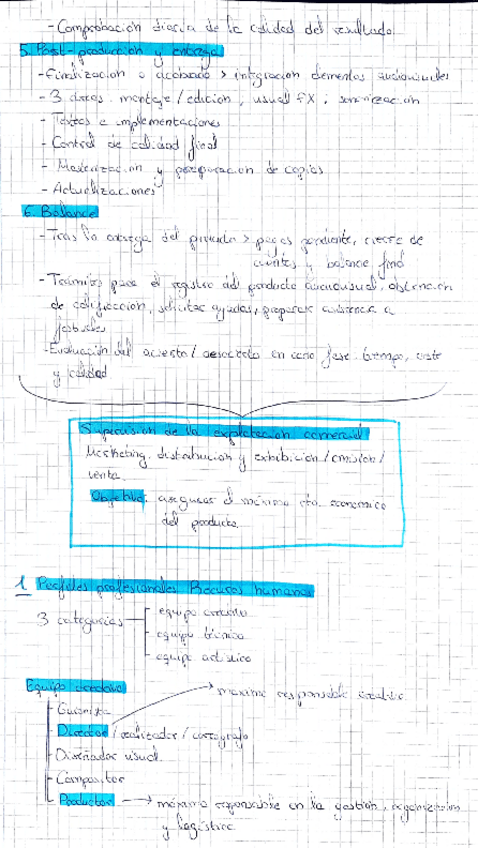 - Comprobación diaria de la calidad del resultado
5. Post-producción y entrega
- Finalización o acabado > integración elementos audiovisuales
- 3 áreas: montaje/edición, visual FX, sonorización
- Testes e implementaciones
- Control de calidad final
- Masterización y preparación de copias
- Actualizaciones
6. Balance
- Tras la entrega del producto > pagos pendiente, cierre de
cuentas y balance final
- Trámites para el registro del producto audiovisual, obtención
de calificación, solicitar ayudas, preparar asistencia a
festivales
- Evaluación del acierto/desacierto en cada fase: tiempo, coste
y calidad
Supervisión de la explotación comercial
Marketing, distribución y exhibición/emisión/
venta.
Objetivo: asegurar el máximo rto. económico
del producto.
1. Perfiles profesionales. Recursos humanos
3 categorías
equipo creativo
equipo técnico
equipo artístico
Equipo creativo
máximo responsable creativo
- Guionista
- Director/realizador/coreógrafo
- Diseñador visual
- Compositor
- Productor → máximo responsable en la gestión, organización
y logística